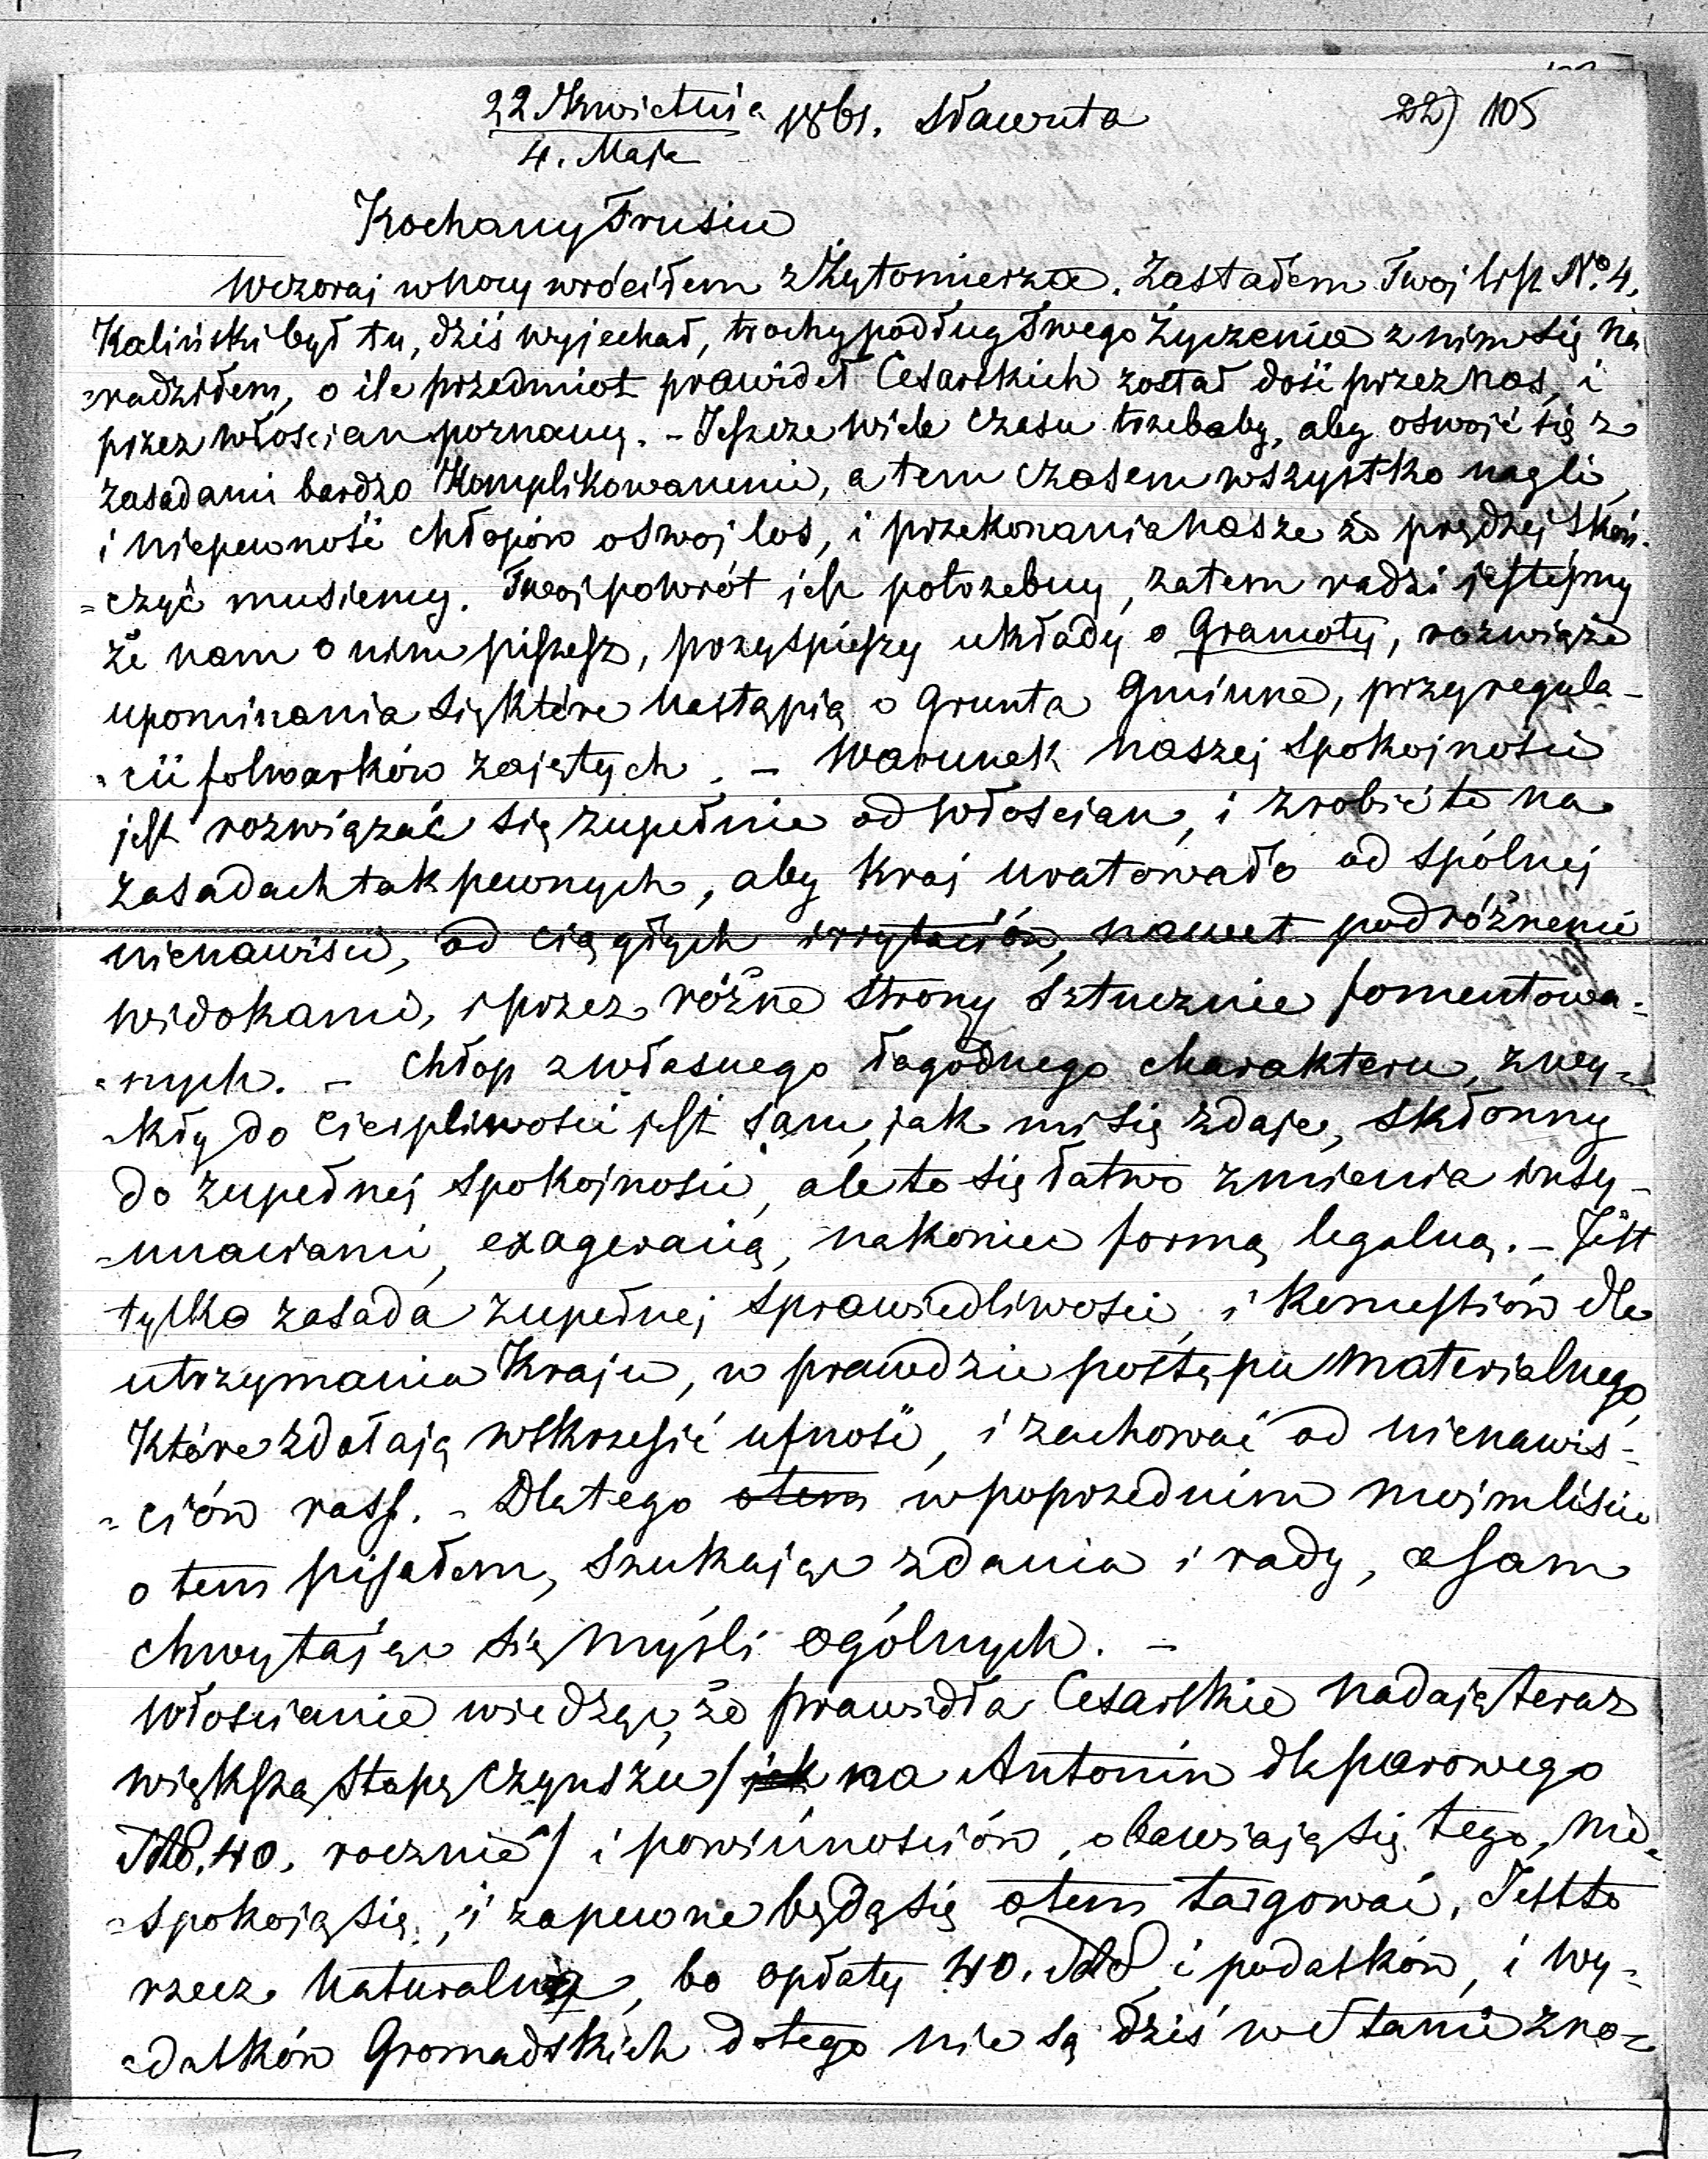 22 Kwietnia
4. Maja
1861. Sławuta
22) 105
Kochany Trusiu
Wczoraj w nocy wróciłem z Żytomierza. Zastałem Twój list No. 4.
Kaliński był tu, dziś wyjechał, trochy podług Twego życzenia z nim się na
=radziłem, o ile przedmiot prawideł Cesarskich został dość przez nas, i
przez włościan poznany. - Jeszcze wiele czasu trzebaby, aby oswoić się z
zasadami bardzo Komplikowanemi, a tem czasem wszystko nagli,
i niepewność chłopów o swoj los, i przekonania nasze że prędzej skoń-
=czyć musiemy. Twoj powrót jest potrzebny, zatem radzi jesteśmy
że nam o nim piszesz, przyspieszy układy o Gramoty, rozwiąże
upominania się które nastąpią o Grunta Gminne, przy regula-
=cii folwarków zajętych. - Warunek naszej spokojności
jest rozwiązać się zupełnie od włościan, i zrobić to na
zasadach tak pewnych, aby kraj uratowało od spólnej
nienawiści, od ciągłych irrytaciów, nawet podróżnemi
widokami, i przez różne strony sztucznie fomentowa-
=nych. - Chłop z własnego łagodnego charakteru, zwy-
=kły do cierpliwości jest sam, jak mi się zdaje, skłonny
do zupełnej spokojności, ale to się łatwo zmienia insy-
=nuaciami, exageracią, nakoniec formą legalną. - Jest
tylko zasada zupełnej sprawiedliwości, i
utrzymania Kraju, w prawdzie postępu materialnego,
Które zdołają wskrzesić ufność, i zachować od nienawiś-
=ciów rass. - Dlatego otem w poprzednim moim liście
o tem pisałem, szukając zdania i rady, a sam
chwytając się myśli ogólnych. -
Włościanie wiedząc, że prawidła Cesarskie nadają teraz
większą stopę czynszu / jak na Antonin dla parowego
40. rocznie / i powinnościów, obawiają się tego, nie-
=spokoją się, i zapewne będą się otem targować. Jest to
rzecz naturalna, bo opłaty 40. i podatków, i wy-
=datków Gromadskich dotego nie są dziś w stanie zno-